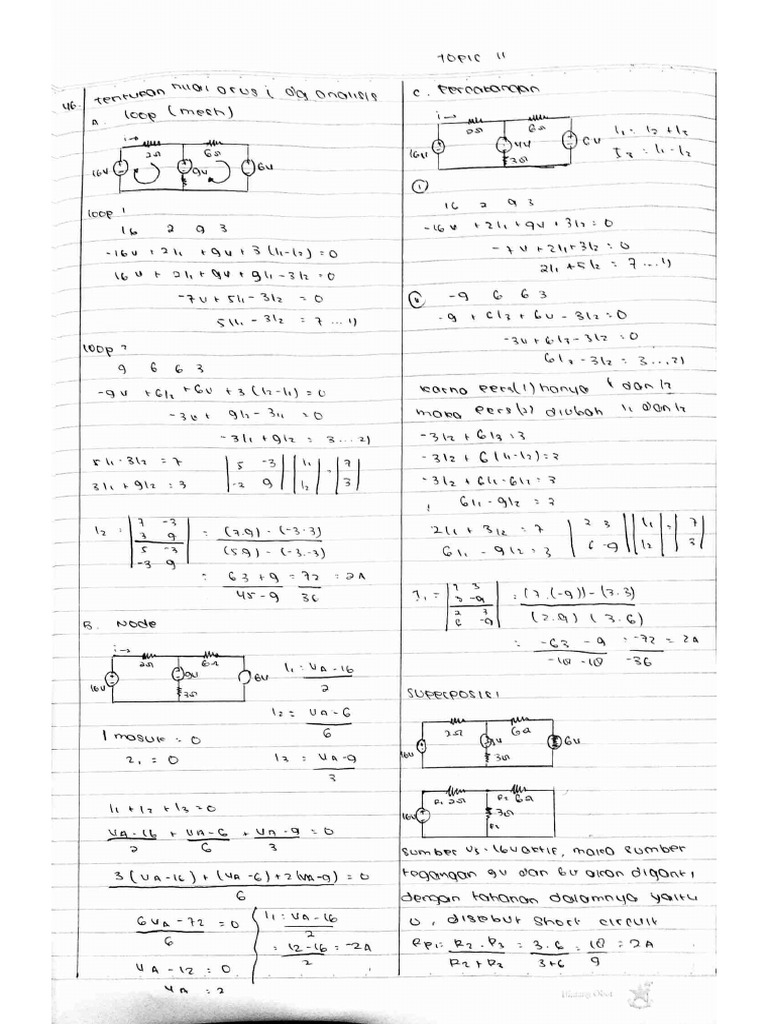 Topic 11
46. Tentukan nilai arus i dg analisis
A. loop (mesh)
i→
2Ω 6Ω
16v 9v 6v
loop 1
16 2 9 3
-16v + 2I1 + 9v + 3(I1-I2) = 0
16v + 2I1 + 9v + 9I1 - 3I2 = 0
-7v + 5I1 - 3I2 = 0
5I1 - 3I2 = 7 ...1)
loop 2
9 6 6 3
-9v + 6I2 + 6v + 3(I2-I1) = 0
-3v + 9I2 - 3I1 = 0
-3I1 + 9I2 = 3 ...2)
5I1 - 3I2 = 7 | 5 -3 | | I1 | = | 7 |
3I1 + 9I2 = 3 | -3 9 | | I2 | | 3 |
I2 = | 7 -3 | = (7.9) - (-3.3)
| 3 9 |
| 5 -3 | (5.9) - (-3.-3)
| -3 9 |
= 63 + 9 = 72 = 2A
45 - 9 36
B. Node
i→
2Ω 6Ω
16v 9v 6v
3Ω
I1 = VA - 16
2
I2 = VA - 6
6
I masuk = 0
ΣI = 0 I3 = VA - 9
3
I1 + I2 + I3 = 0
VA - 16 + VA - 6 + VA - 9 = 0
2 6 3
3(VA - 16) + (VA - 6) + 2(VA - 9) = 0
6
6VA - 72 = 0
6
VA - 12 = 0
VA = 2
I1 = VA - 16
2
= 12 - 16 = -2A
2
C. Percabangan
i→
2Ω 6Ω
16v 4v 6v
3Ω
I1 = I2 + I3
I3 = I1 - I2
(1)
16 2 9 3
-16v + 2I1 + 9v + 3I2 = 0
-7v + 2I1 + 3I2 = 0
2I1 + 5I2 = 7 ...1)
-9 6 6 3
-9 + 6I3 + 6v - 3I2 = 0
-3v + 6I3 - 3I2 = 0
6I3 - 3I2 = 3 ...2)
karna pers(1) hanya I1 dan I2
maka pers(2) diubah I1 dan I2
-3I2 + 6I3 = 3
-3I2 + 6(I1-I2) = 3
-3I2 + 6I1 - 6I2 = 3
6I1 - 9I2 = 3
2I1 + 3I2 = 7 | 2 3 | | I1 | = | 7 |
6I1 - 9I2 = 3 | 6 -9 | | I2 | | 3 |
I1 = | 7 3 | = (7.(-9)) - (3.3)
| 3 -9 |
| 2 3 | (2.9) (3.6)
| 6 -9 |
= -63 - 9 = -72 = 2A
-18 - 18 -36
Superposisi
2Ω 6Ω
16v 9v 6v
3Ω
R1 2Ω R3 6Ω
16v 3Ω
R2
Sumber Vs = 16v aktif, maka sumber
tegangan 9v dan 6v akan diganti
dengan tahanan dalamnya yaitu
0, disebut short circuit
Rp1 = R2 . R3 = 3.6 = 18 = 2A
R2 + R3 3+6 9